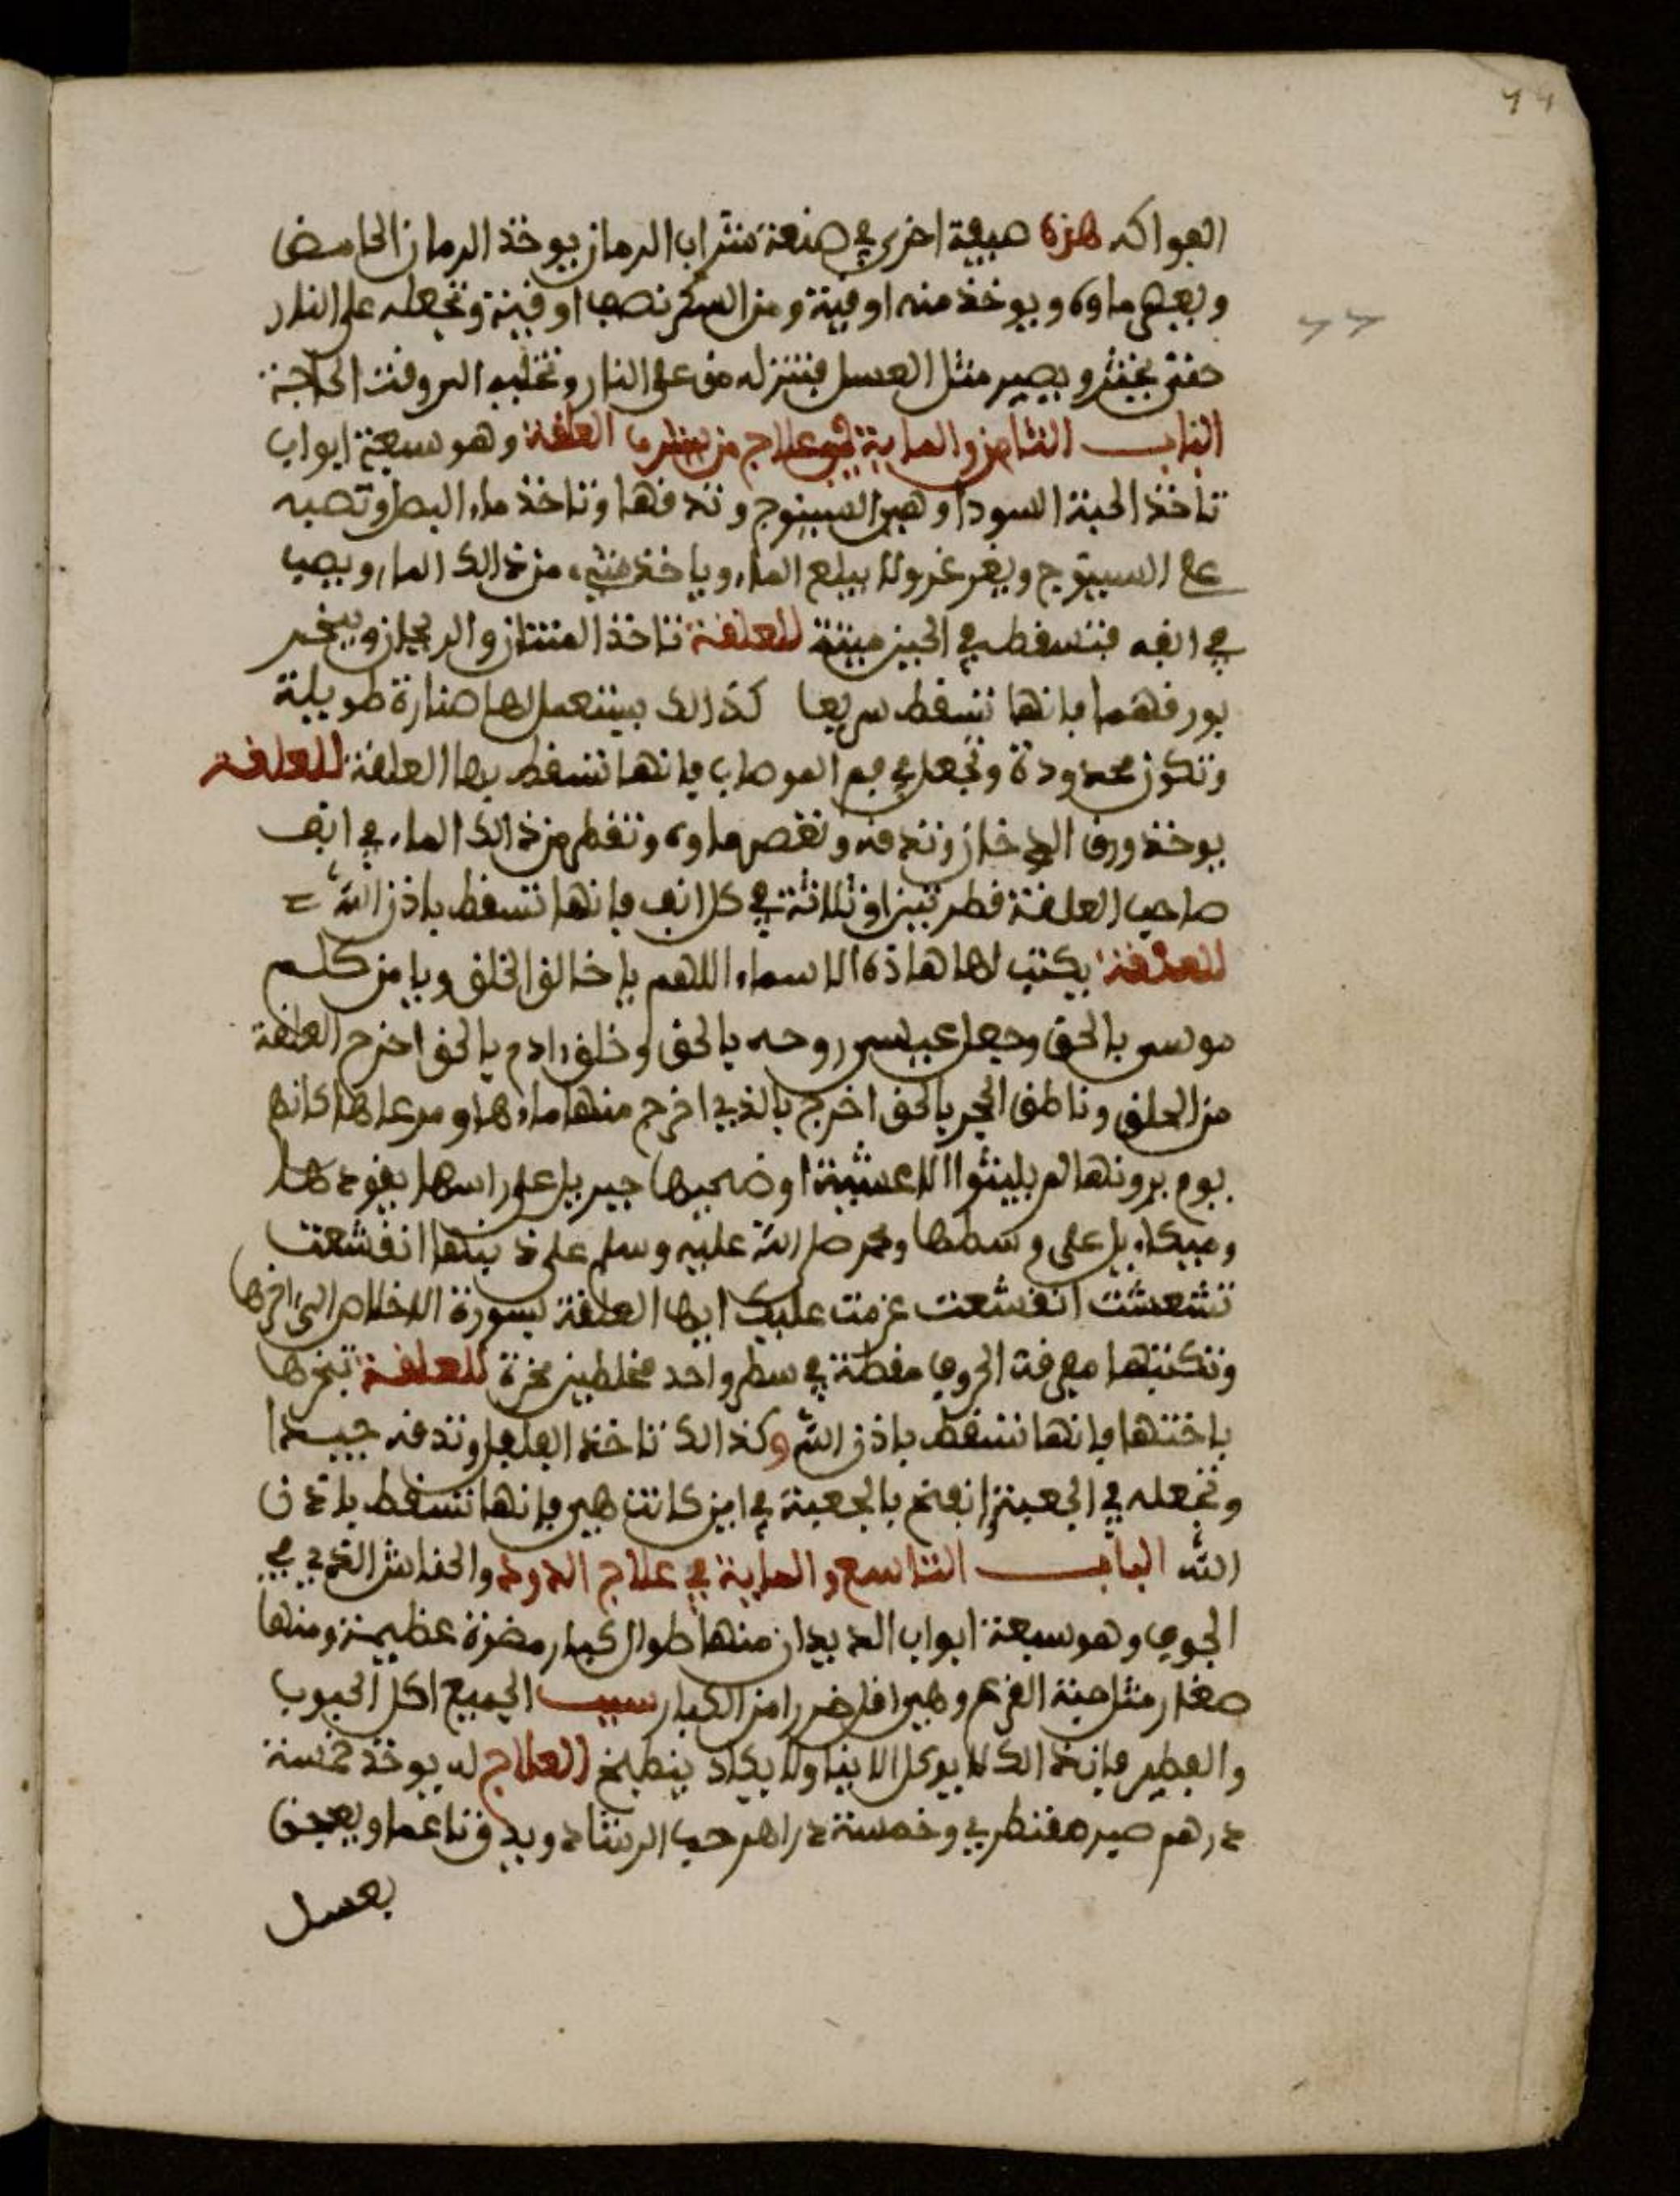 الفواكه هذه صفة اخرى في صنعة شراب الرمان يوخذ الرمان الحامض
ويعصر ماوه ويوخذ منه اوقية ومن السكر نصف اوقية وتجعله على النار
حتى يخثر ويصير مثل العسل فتنزله من على النار وتخليه الى وقت الحاجة
الباب الثامن والماية في علاج من شرب العلقة وهو سبعة ابواب
تاخذ الحبة السودا وهي السينوج وتدقها وتاخذ ماء البصل وتصبه
على السينوج ويغرغر ولا يبلع الماء وياخذ شيء من ذالك الماء ويصب
في انفه فتسقط في الحين ميتة للعلقة تاخذ المنتان والريحان ويبخر
بورقهما فانها تسقط سريعا كذالك يستعمل لها صنارة طويلة
وتكون محدودة وتجعل في فم الموصاب فانها تسقط بها العلقة للعلقة
يوخذ ورق الدخان وتدقه وتعصر ماوه وتقطر من ذالك الماء في انف
صاحب العلقة قطرتين او ثلاثة في كل انف فانها تسقط باذن الله
للعلقة يكتب لها هاذه الاسماء اللهم يا خالق الخلق ويا من كلم
موسى بالحق وجعل عيسى روحه بالحق وخلق ادم بالحق اخرج العلقة
من الحلق وناطق الحجر بالحق اخرج بالذي اخرج منها ماءها ومرعاها كانهم
يوم يرونها لم يلبثوا الا عشية او ضحيها جبريل على راسها يقودها
وميكاءيل على وسطها ومحمد صلى الله عليه وسلم على ذنبها انقشعت
تشعشت انقشعت عزمت عليك ايها العلقة بسورة الاخلاص الى اخرها
وتكتبها مفرقة الحروف مقطة في سطر واحد للعلقة تبخرها
باختها فانها تسقط باذن الله وكذالك تاخذ الفلفل وتدقه جيدا
وتجعله في الجعبة انفخ بالجعبة في اين كانت هي فانها تسقط باذن
الله الباب التاسع والماية في علاج الدود والحناش الذي في
الجوف وهو سبعة ابواب الديدان منها طوال كبار مضرة عظيمة ومنها
صغار مثل حبة القرع وهي اقل ضررا من الكبار سبب الجميع اكل الحبوب
والفطير فان ذالك لا يوكل الا نيا ولا يكاد ينطبخ العلاج له يوخذ خمسة
درهم صبر مقنطري وخمسة دراهم حب الرشاد ويدق ناعما ويعجن
بعسل